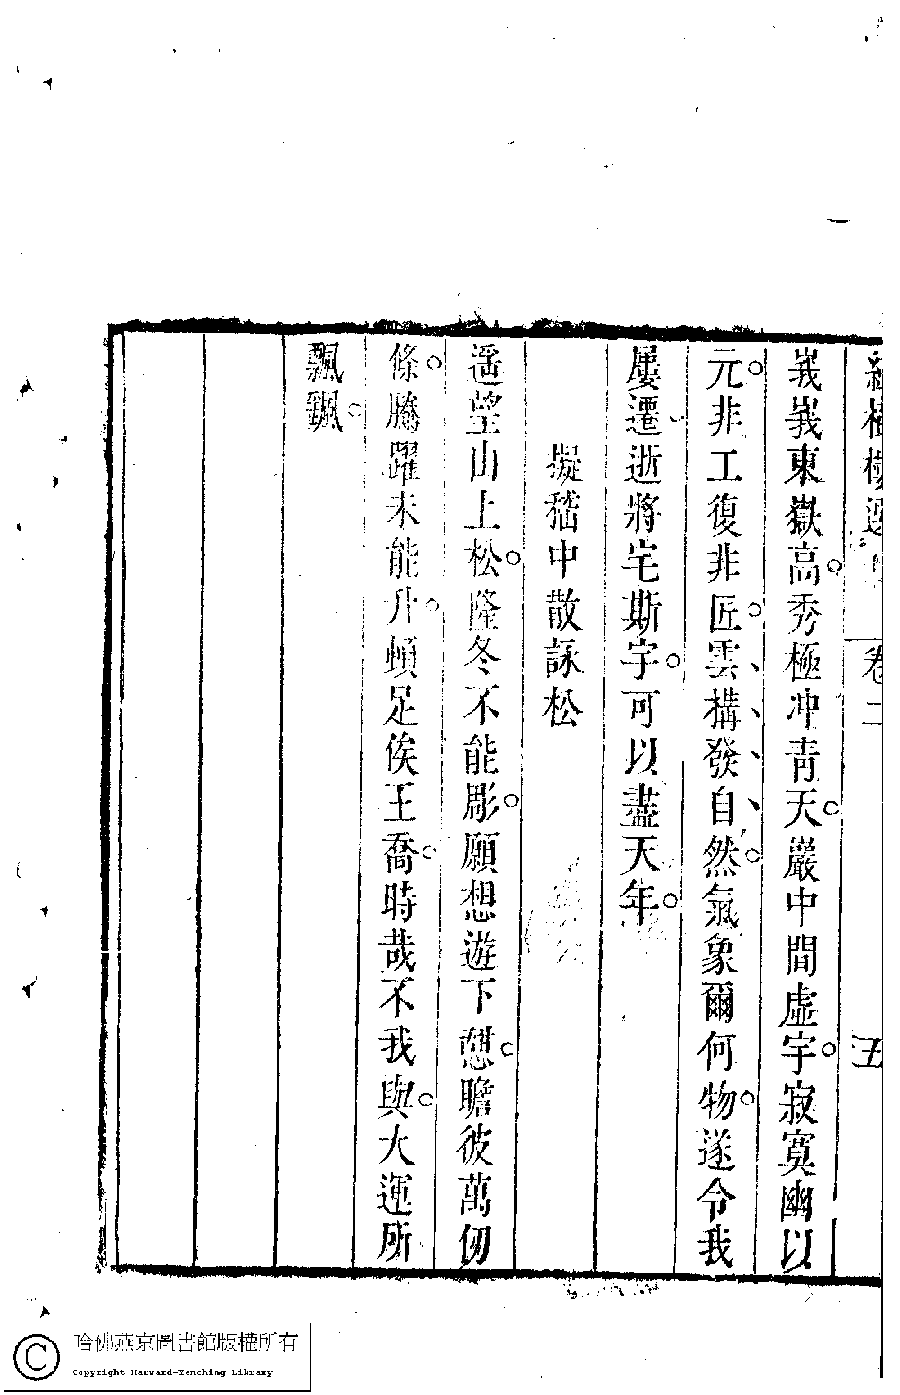 峩峩東嶽高秀極冲青天巖中間虛宇寂寞幽以
元非工復非匠雲構發自然氣象爾何物遂令我
屢遷逝將宅斯宇可以盡天年
擬嵇中散詠松
遥望山上松隆冬不能彫願想遊下憇瞻彼萬仞
條騰躍未能升頓足俟王喬時哉不我與大運所
飄颻
卷二
五
哈佛燕京圖書館版權所有
Copyright Harvard-Yenching Library